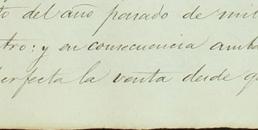 to del año pasado de mil
tro: y en consecuencia amba
perfecta la venta desde q